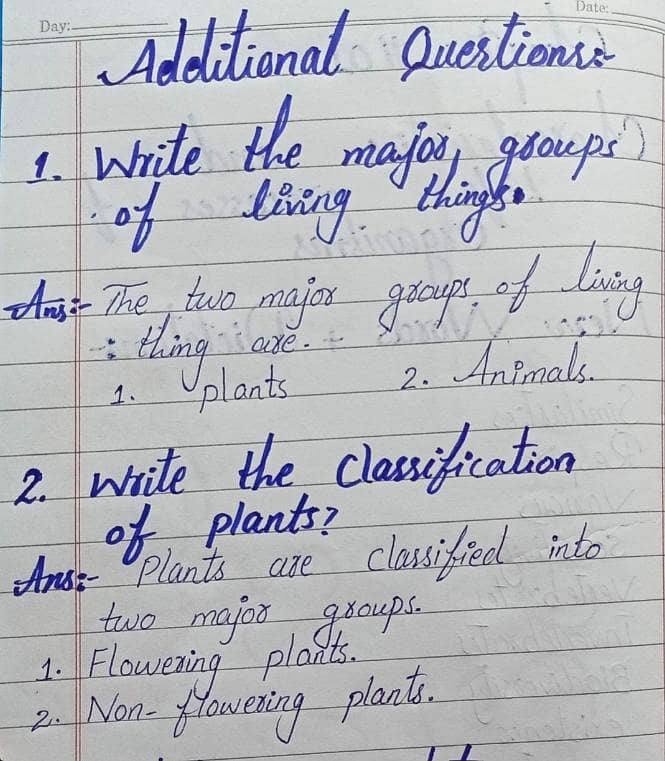 Day:
Date:
Additional Questions:-
1. Write the major, groups
of living things.
Ans:- The two major groups of living
: thing are:-
1. plants 2. Animals.
2. Write the Classification
of plants?
Ans:- Plants are classified into
two major groups.
1. Flowering plants.
2. Non-flowering plants.